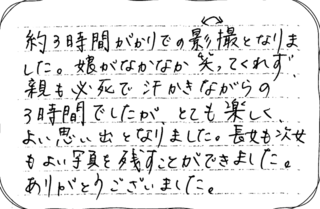 約3時間がかりでの影撮となりま
した。娘がなかなか笑ってくれず、
親も必死で汗かきながらの
3時間でしたが、とても楽しく、
よい思い出となりました。長女も次女
もよい写真を残すことができました。
ありがとうございました。